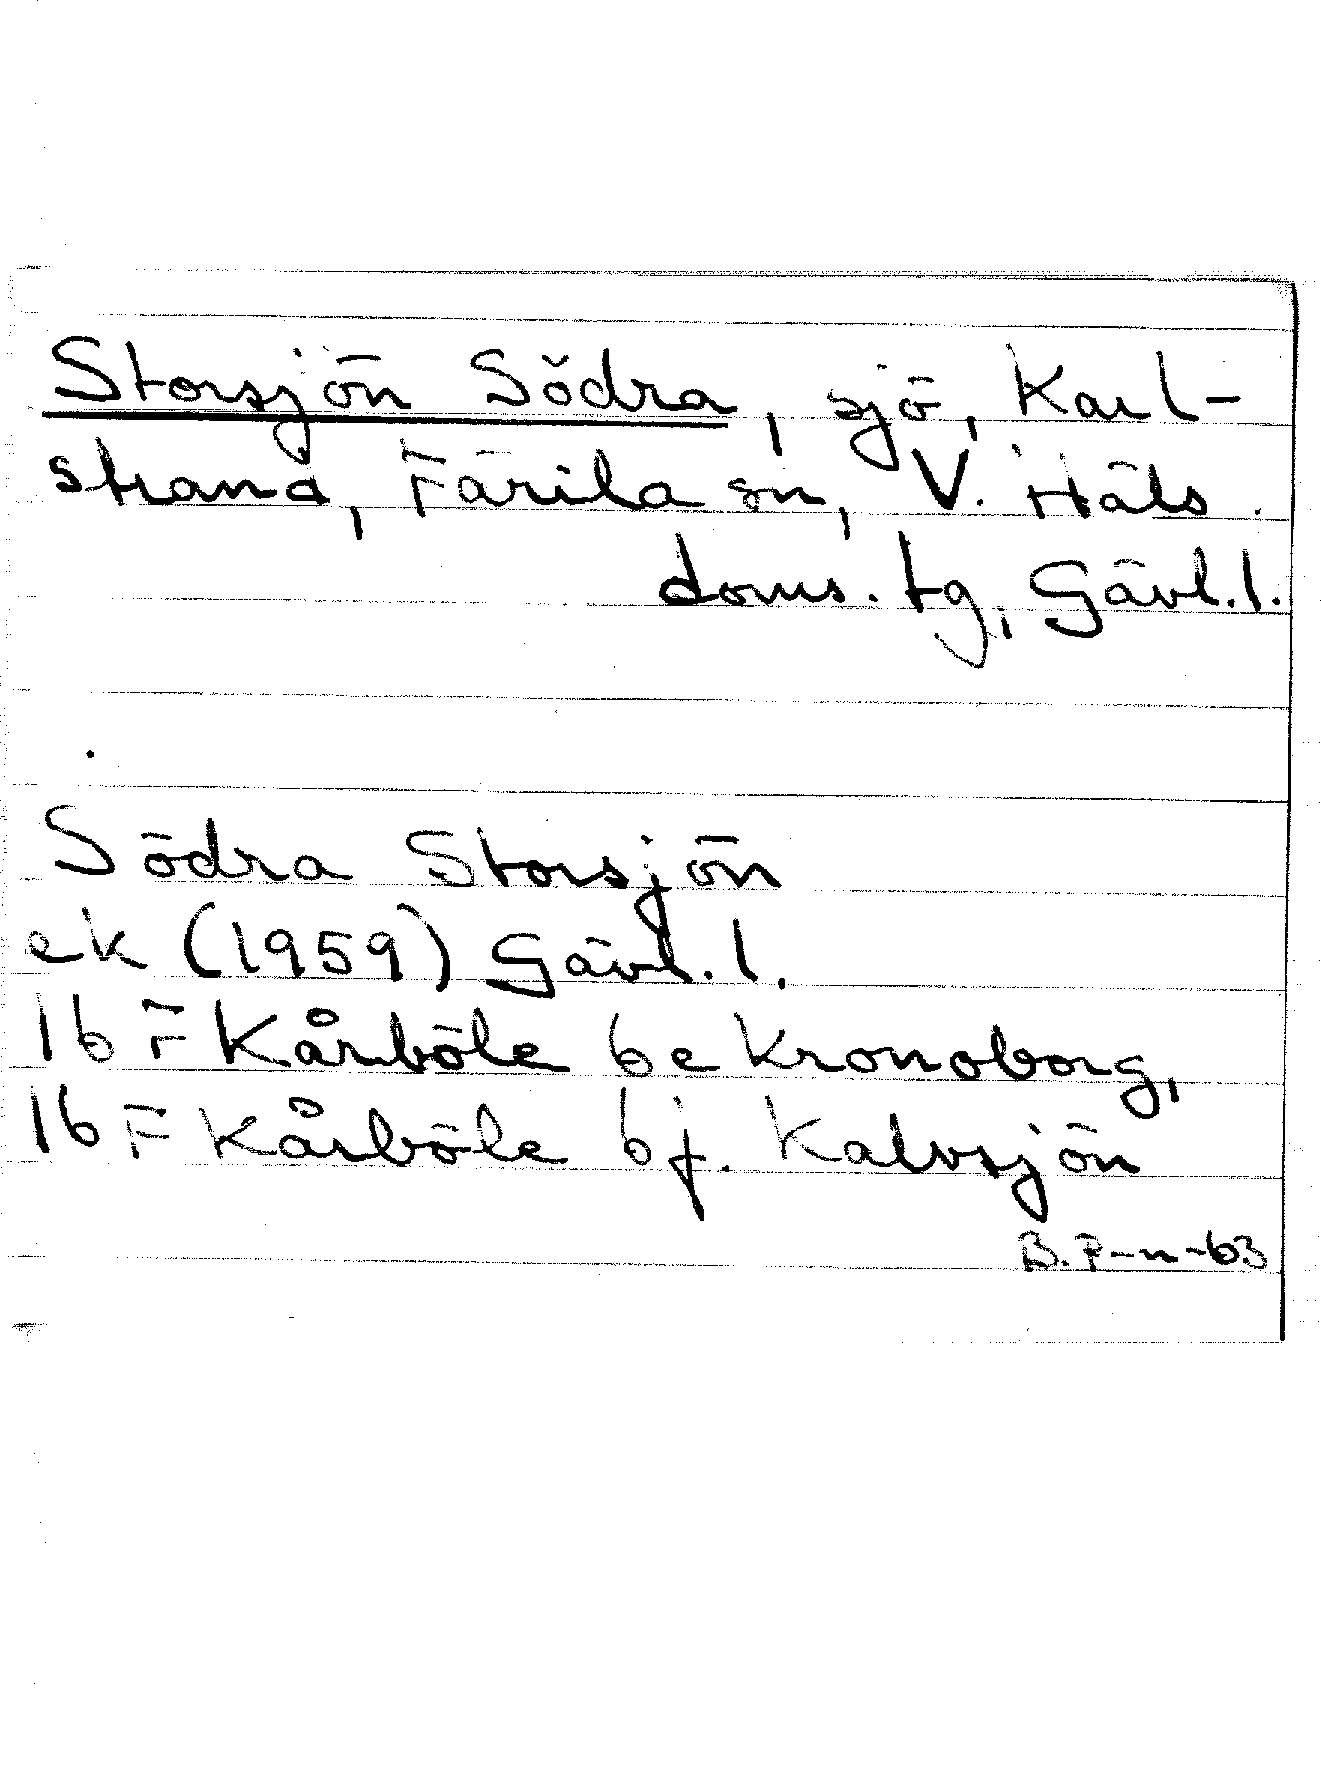 Storsjön Södra, sjö, Karl-
strand, Färila sn, V. Häls.
doms. tg, Gävl.l.
Södra Storsjön
ek (1959) Gävl.l.
16 F Kårböle 6e Kronoborg,
16 F Kårböle 6f. Kalvsjön
B.P-n-63